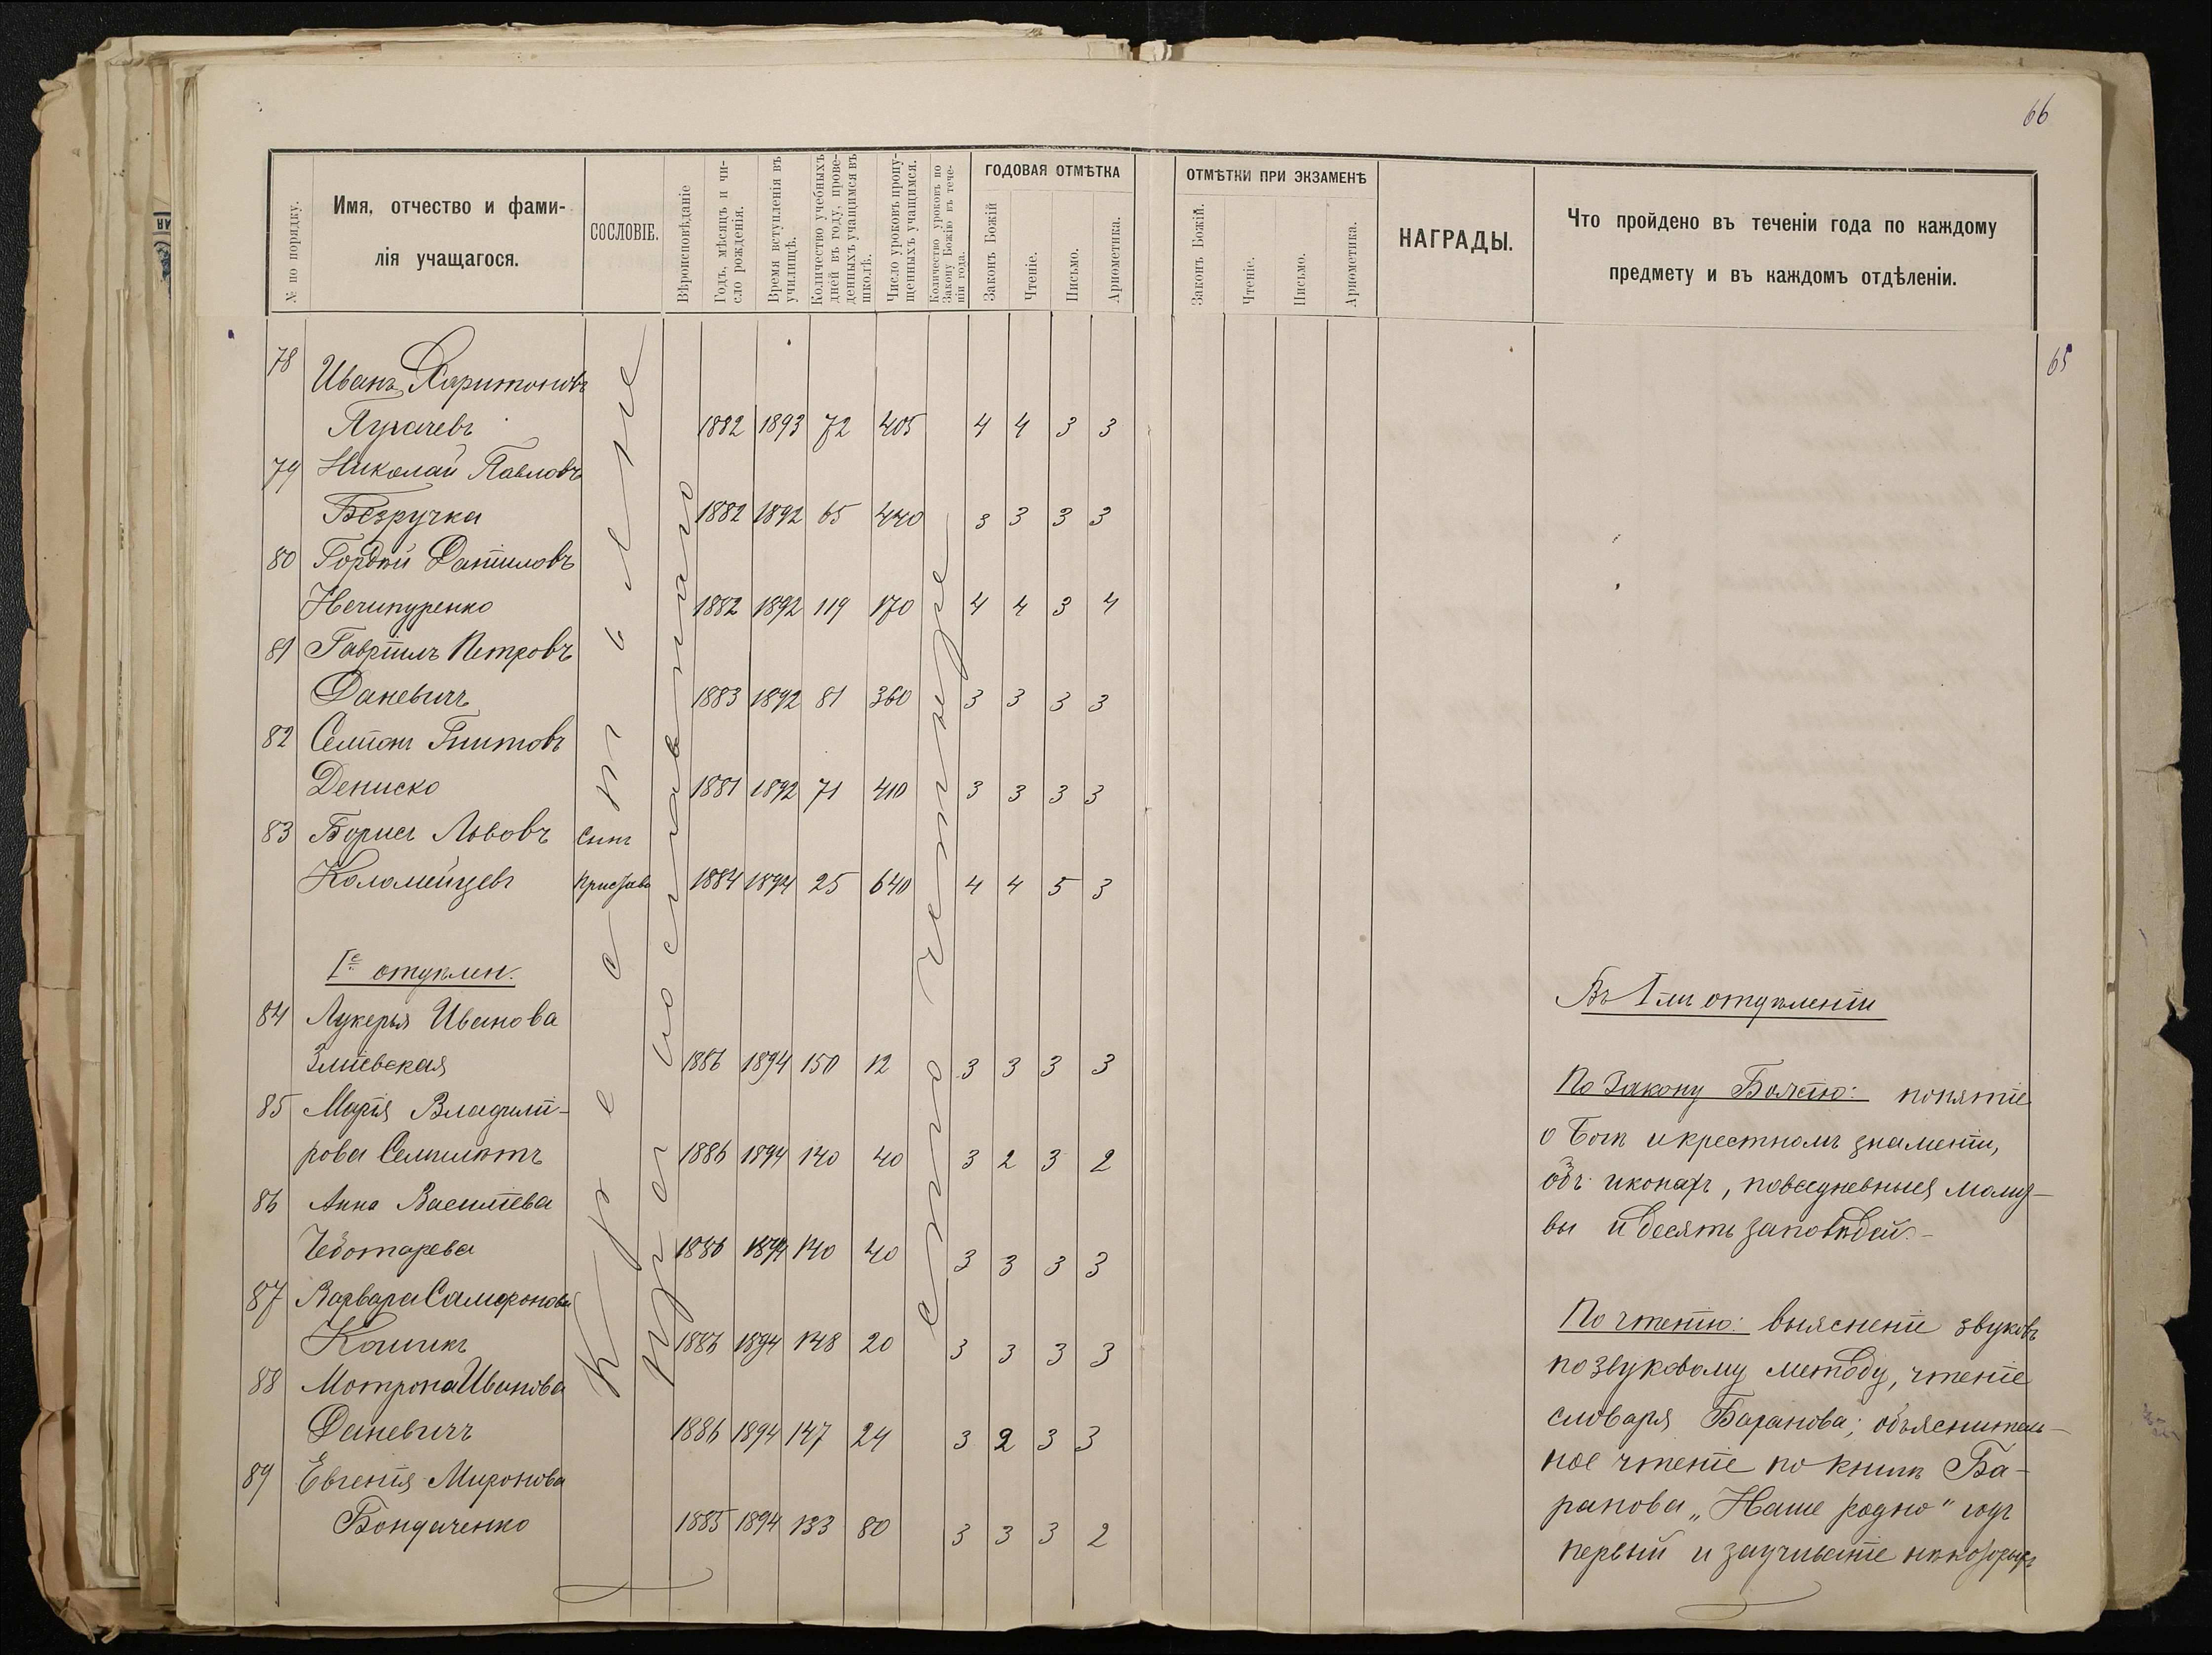 66
№ по порядку.
Имя, отчество и фами-
лія учащагося.
СОСЛОВІЕ.
Вѣроисповѣданіе
Годъ, мѣсяцъ и чи-
сло рожденія.
Время вступленія въ
училищѣ.
Количество учебныхъ
дней въ году, прове-
денныхъ учащимся въ
школѣ.
Число уроковъ пропу-
щенныхъ учащимся.
Количество уроковъ по
Закону Божію въ тече-
ніи года.
ГОДОВАЯ ОТМѢТКА
Законъ Божій
Чтеніе.
Письмо.
Ариѳметика.
ОТМѢТКИ ПРИ ЭКЗАМЕНѢ
Законъ Божій.
Чтеніе.
Письмо.
Ариѳметика.
НАГРАДЫ.
Что пройдено въ теченіи года по каждому
предмету и въ каждомъ отдѣленіи.
65
78 Иванъ Харитоновъ
Пугачевъ 1882 1893 72 405 4 4 3 3
79 Николай Павловъ
Безручка 1882 1892 65 440 3 3 3 3
80 Гордѣй Даниловъ
Нечипуренко 1882 1892 119 170 4 4 3 4
81 Гавріилъ Петровъ
Даневичъ 1883 1892 81 360 3 3 3 3
82 Семіонъ Титовъ
Дениско 1881 1892 71 410 3 3 3 3
83 Борисъ Львовъ Сынъ
Коломейцевъ пристава 1884 1894 25 640 4 4 5 3
Iе отдѣлен.
84 Лукерья Иванова
Зміевская 1886 1894 150 12 3 3 3 3
85 Марія Владимі-
рова Семилѣтъ 1886 1894 140 40 3 2 3 2
86 Анна Василіева
Чеботарева 1886 1894 140 40 3 3 3 3
87 Варвара Самфронова
Кошикъ 1886 1894 148 20 3 3 3 3
88 Мотрона Иванова
Даневичъ 1886 1894 147 24 3 2 3 3
89 Евгенія Миронова
Бондаченко 1885 1894 133 80 3 3 3 2
Крестьяне
православнаго
сто четыре
Въ Iмъ отдѣленіи
По Закону Божію: понятіе
о Богѣ и крестномъ знаменіи,
объ иконахъ, повседневныя молит-
вы и десять заповѣдей.-
По чтенію: выясненіе звуковъ
по звуковому методу, чтеніе
словаря Баранова; объяснитель-
ное чтеніе по книгѣ Ба-
ранова „Наше родно" годъ
первый и заучиваніе нѣкоторыхъ